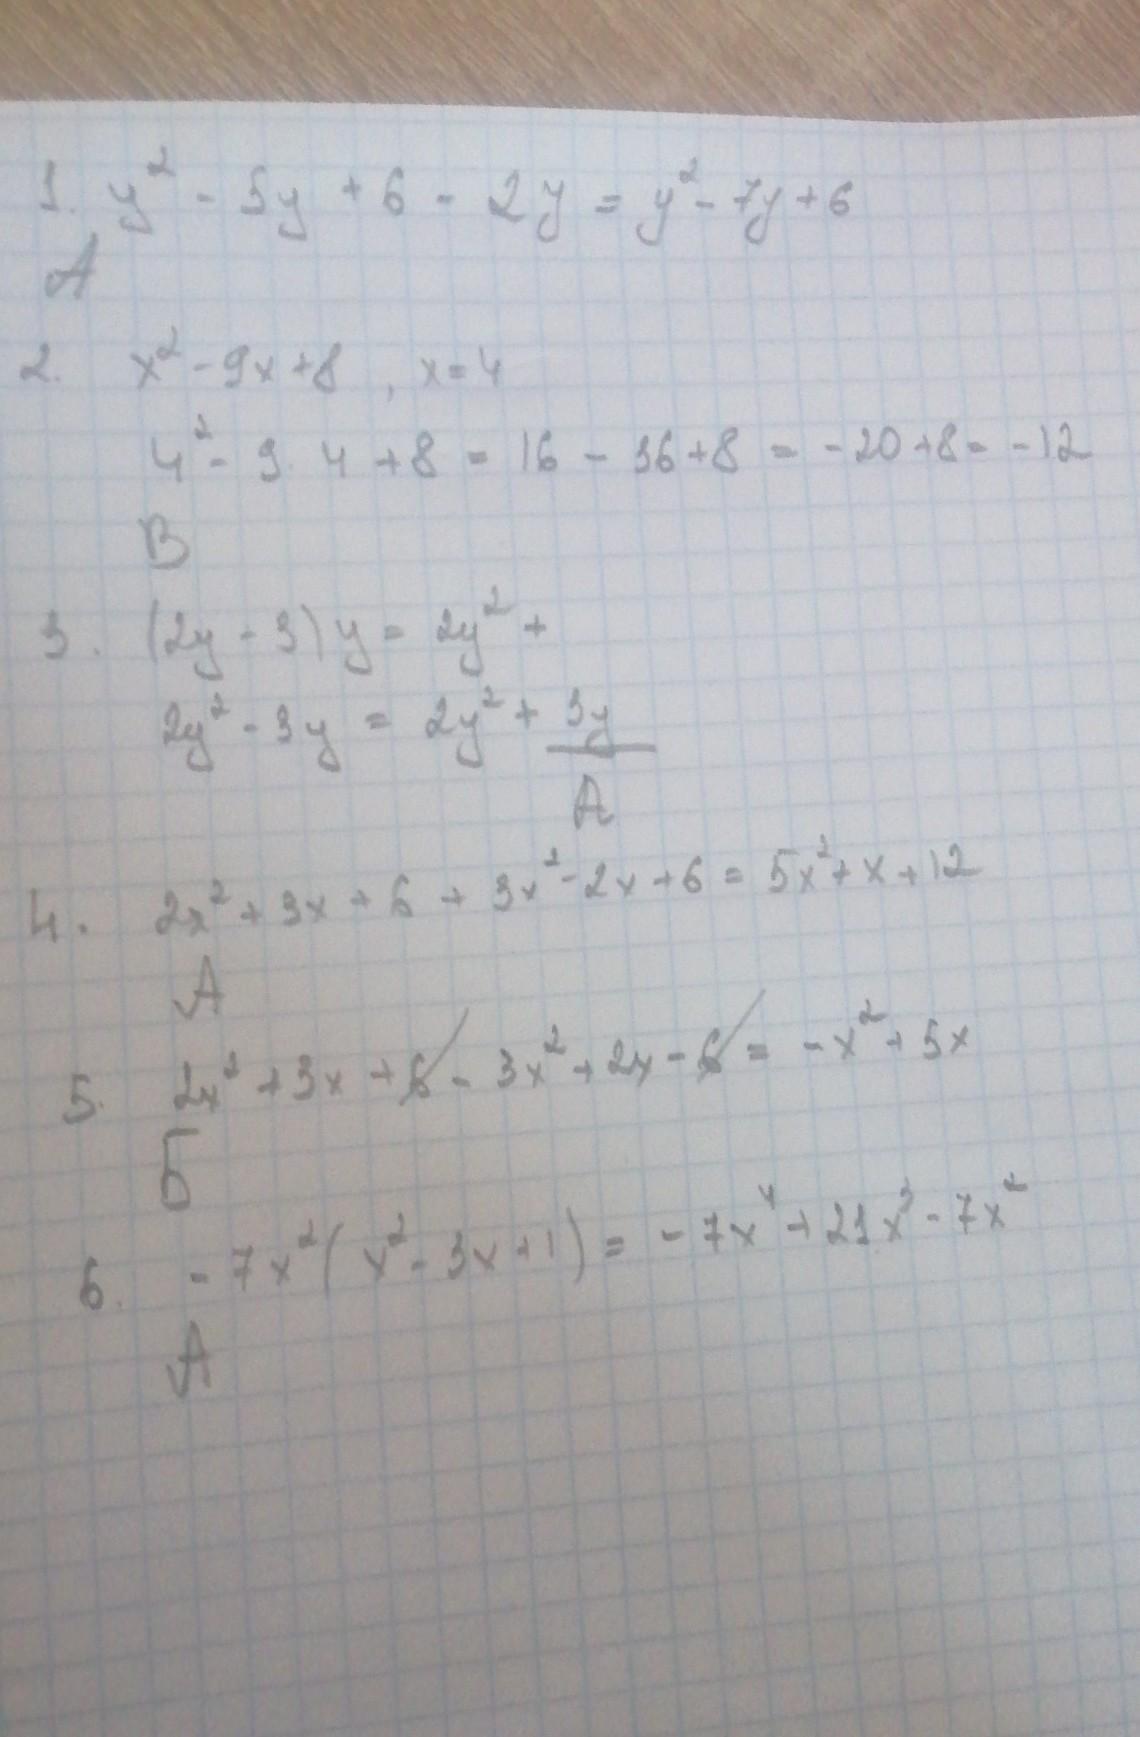 1. y² - 5y + 6 - 2y = y² - 7y + 6
А
2. x² - 9x + 8 , x = 4
4² - 9 · 4 + 8 = 16 - 36 + 8 = -20 + 8 = -12
В
3. (2y - 3) y = 2y² +
2y² - 3y = 2y² + 3y
А
4. 2x² + 3x + 6 + 3x² - 2x + 6 = 5x² + x + 12
А
5. 2x² + 3x + 6 - 3x² + 2x - 6 = -x² + 5x
Б
6. -7x² (x² - 3x + 1) = -7x⁴ + 21x³ - 7x²
А